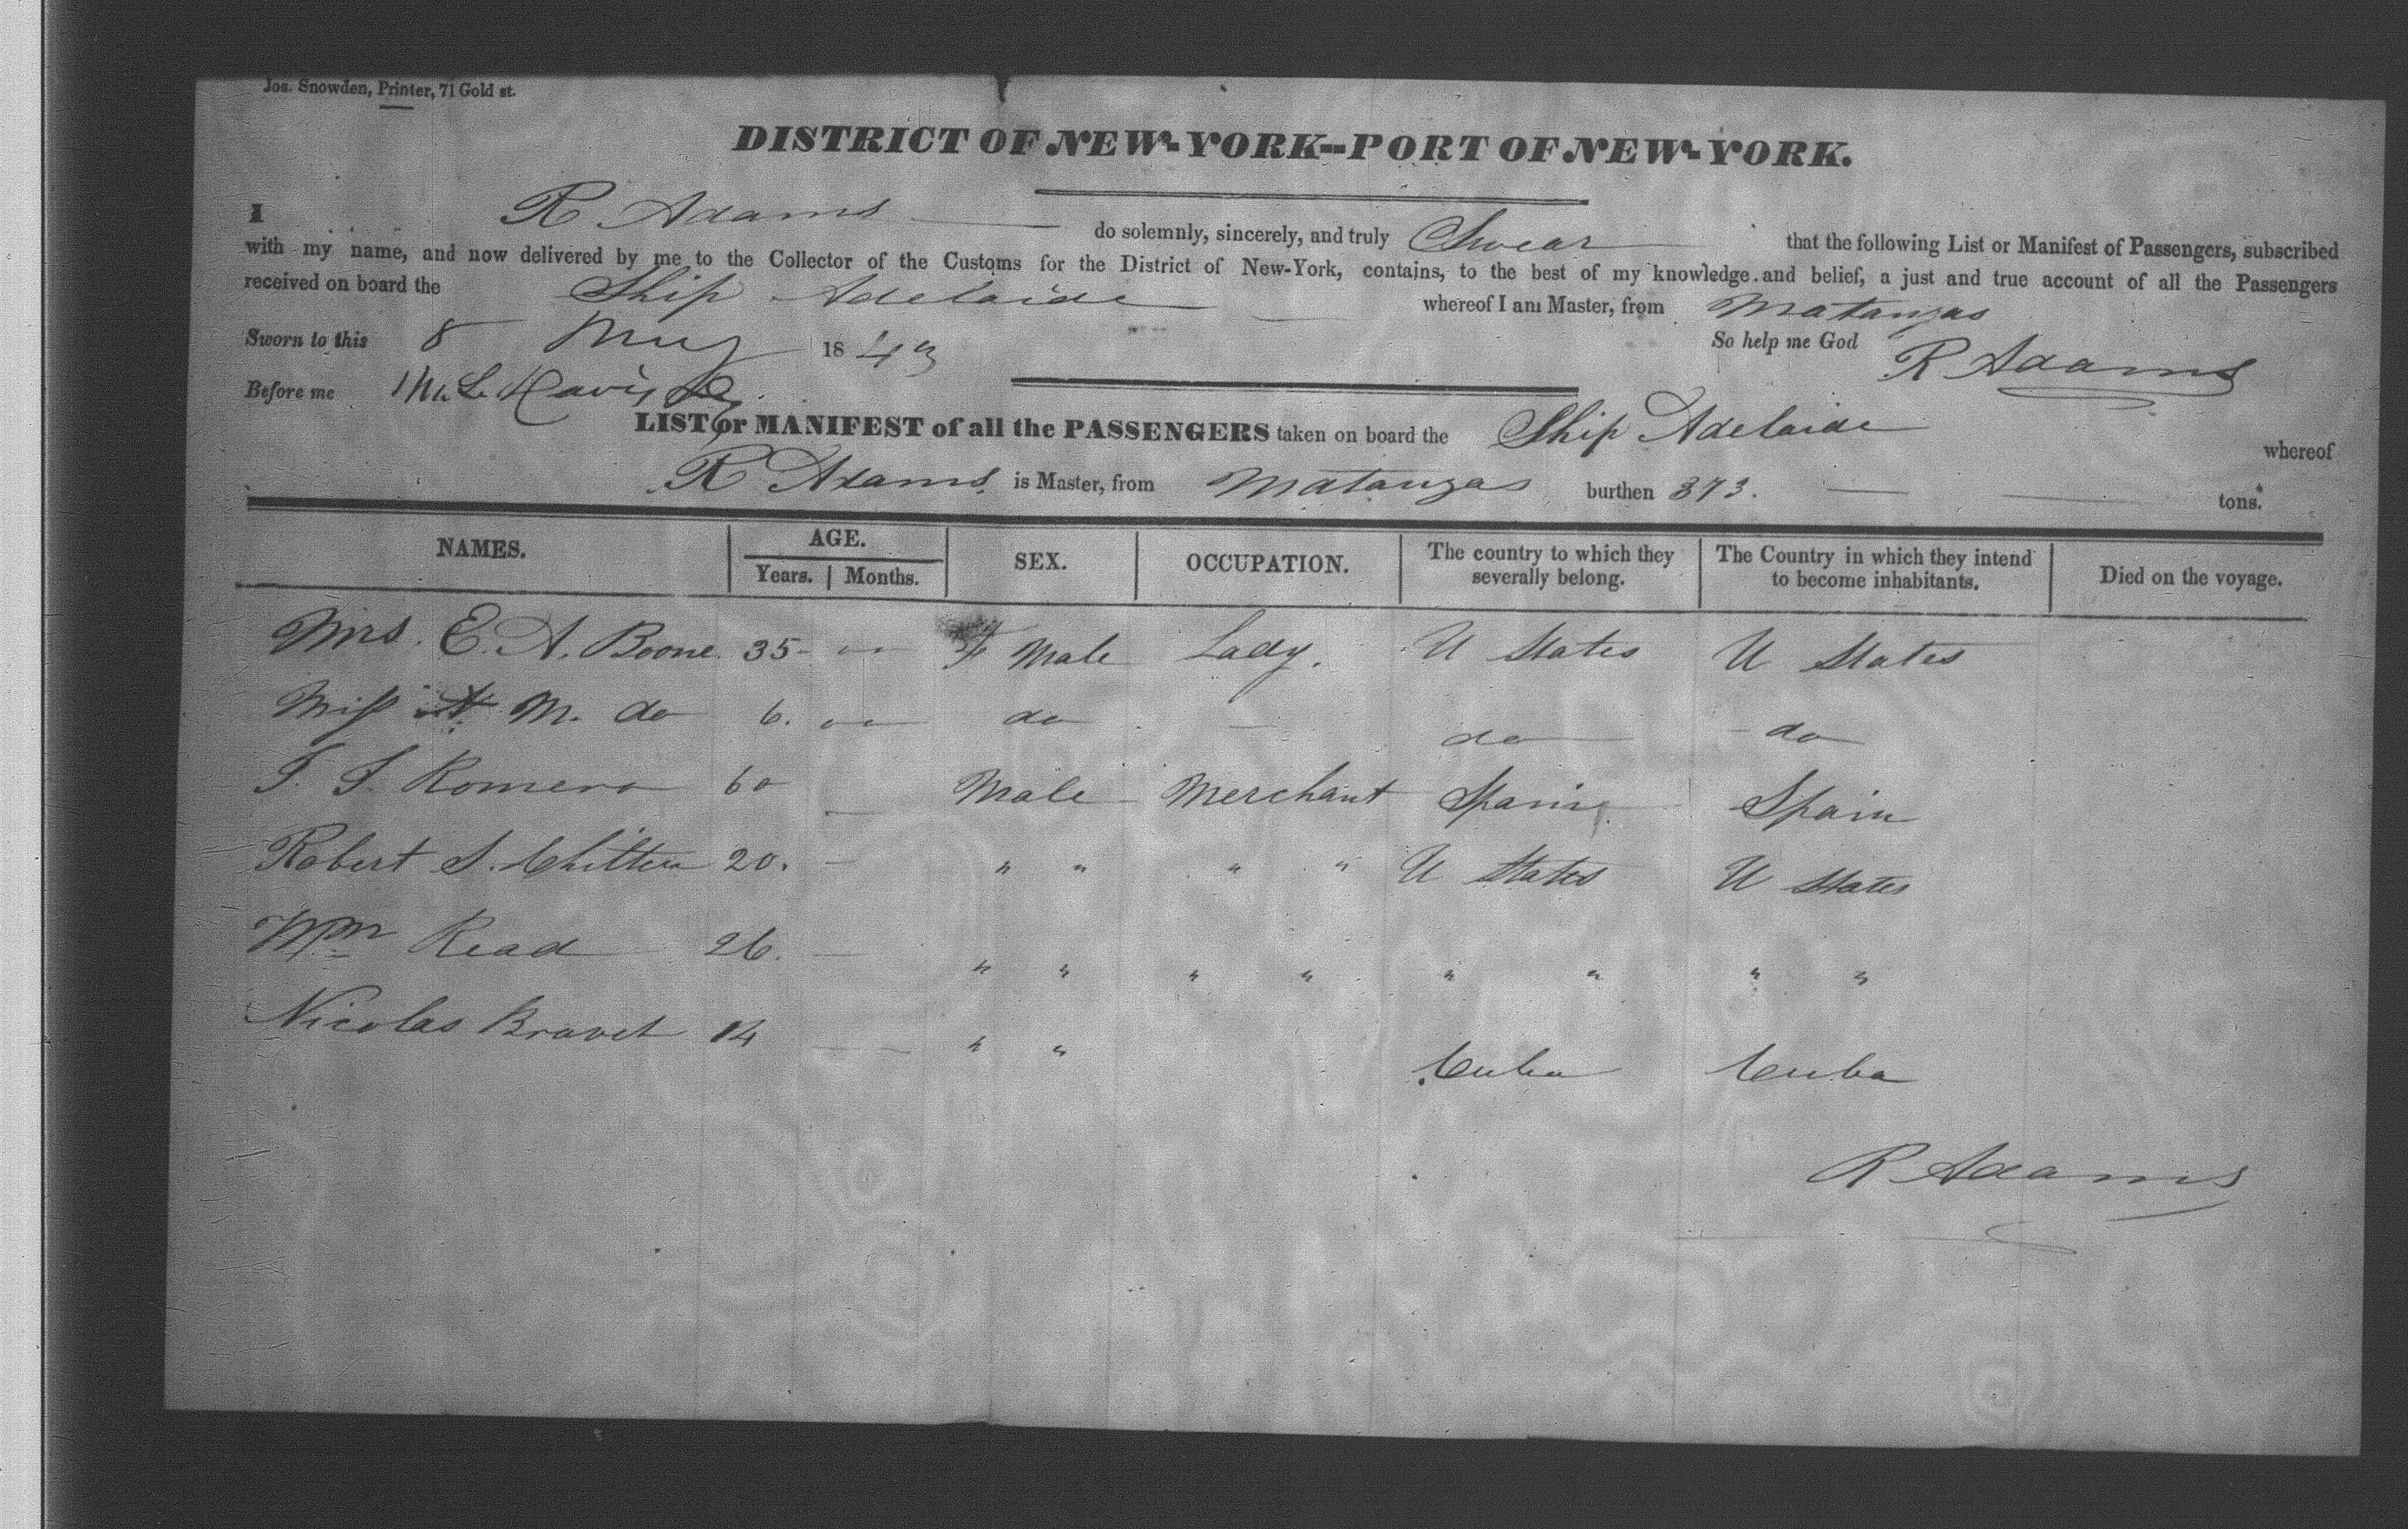 Jos. Snowden, Printer, 71 Gold st.
DISTRICT OF NEW-YORK--PORT OF NEW-YORK.
I R Adams do solemnly, sincerely, and truly Swear that the following List or Manifest of Passengers, subscribed
with my name, and now delivered by me to the Collector of the Customs for the District of New-York, contains, to the best of my knowledge and belief, a just and true account of all the Passengers
received on board the Ship Adelaide whereof I am Master, from Matanzas
Sworn to this 8 May 1843 So help me God R Adams
Before me Davis
LIST or MANIFEST of all the PASSENGERS taken on board the Ship Adelaide whereof
R Adams is Master, from Matanzas burthen 373. tons.
NAMES. AGE. Years. Months. SEX. OCCUPATION. The country to which they severally belong. The Country in which they intend to become inhabitants. Died on the voyage.
Mrs. E. A. Boone 35 - " F Male Lady. U States U States
Miss M. do 6. " do - do do
Romero 60 Male Merchant Spain Spain
Robert S. Chitten 20. - " " " " U States U States
Wm Read 26. - " " " " " " " "
Nicolas Bravet 14 " " Cuba Cuba
R Adams